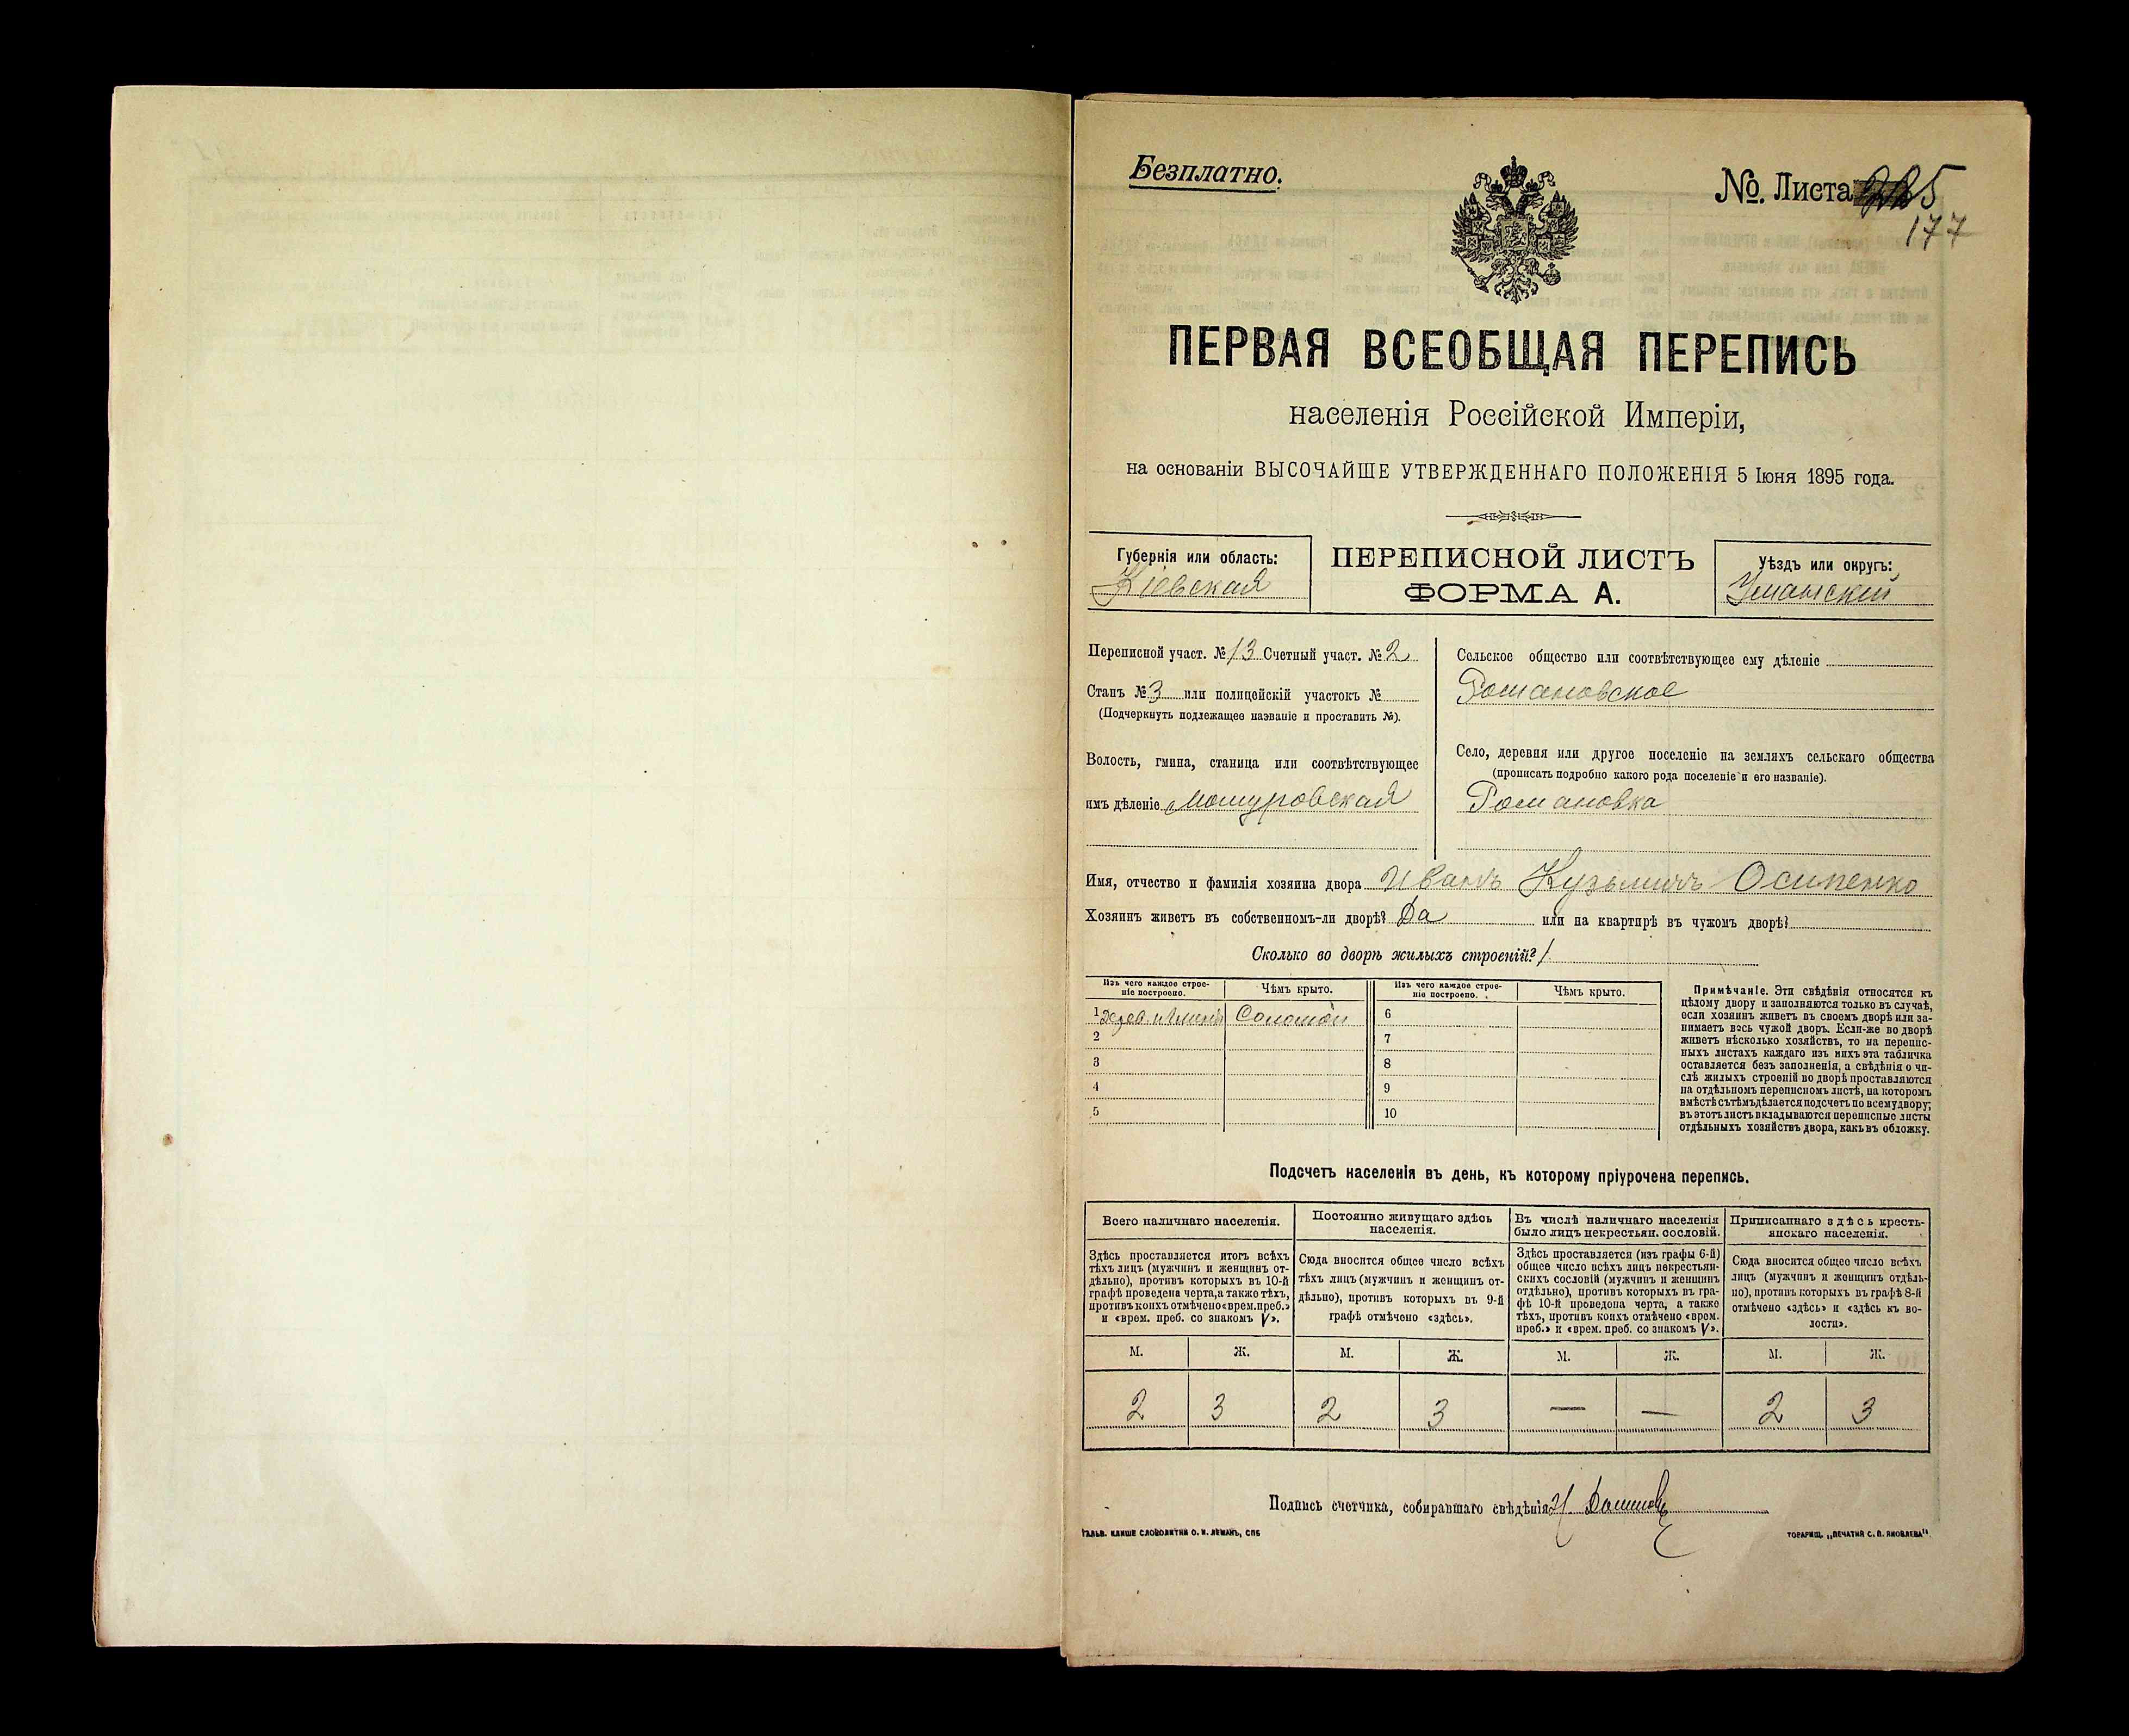 Безплатно.
№. Листа 225
177
ПЕРВАЯ ВСЕОБЩАЯ ПЕРЕПИСЬ
населенія Россійской Имперіи,
на основаніи ВЫСОЧАЙШЕ УТВЕРЖДЕННАГО ПОЛОЖЕНІЯ 5 Іюня 1895 года.
Губернія или область:
Кіевская
ПЕРЕПИСНОЙ ЛИСТЪ
ФОРМА А.
Уѣздъ или округъ:
Уманскій
Переписной участ. № 13 Счетный участ. № 2
Станъ № 3 или полицейскій участокъ №
(Подчеркнуть подлежащее названіе и проставить №).
Волость, гмина, станица или соотвѣтствующее
имъ дѣленіе Мошуровская
Сельское общество или соотвѣтствующее ему дѣленіе
Романовское
Село, деревня или другое поселеніе на земляхъ сельскаго общества
(прописать подробно какого рода поселеніе и его названіе).
Романовка
Имя, отчество и фамилія хозяина двора Иванъ Кузьмичъ Осипенко
Хозяинъ живетъ въ собственномъ-ли дворѣ? Да или на квартирѣ въ чужомъ дворѣ?
Сколько во дворѣ жилыхъ строеній? 1
Изъ чего каждое строе-
ніе построено.
Чѣмъ крыто.
Изъ чего каждое строе-
ніе построено.
Чѣмъ крыто.
1 дерев. и глины Соломой 6
2 7
3 8
4 9
5 10
Примѣчаніе. Эти свѣдѣнія относятся къ
цѣлому двору и заполняются только въ случаѣ,
если хозяинъ живетъ въ своемъ дворѣ или за-
нимаетъ весь чужой дворъ. Если-же во дворѣ
живетъ нѣсколько хозяйствъ, то на перепис-
ныхъ листахъ каждаго изъ нихъ эта табличка
оставляется безъ заполненія, а свѣдѣнія о чи-
слѣ жилыхъ строеній во дворѣ проставляются
на отдѣльномъ переписномъ листѣ, на которомъ
вмѣстѣ съ тѣмъ дѣлается подсчетъ по всему двору;
въ этотъ листъ вкладываются переписные листы
отдѣльныхъ хозяйствъ двора, какъ въ обложку.
Подсчетъ населенія въ день, къ которому пріурочена перепись.
Всего наличнаго населенія.
Здѣсь проставляется итогъ всѣхъ
тѣхъ лицъ (мужчинъ и женщинъ от-
дѣльно), противъ которыхъ въ 10-й
графѣ проведена черта, а также тѣхъ,
противъ коихъ отмѣчено «врем. преб.»
и «врем. преб. со знакомъ V».
Постоянно живущаго здѣсь
населенія.
Сюда вносится общее число всѣхъ
тѣхъ лицъ (мужчинъ и женщинъ от-
дѣльно), противъ которыхъ въ 9-й
графѣ отмѣчено «здѣсь».
Въ числѣ наличнаго населенія
было лицъ некрестьян. сословій.
Здѣсь проставляется (изъ графы 6-й)
общее число всѣхъ лицъ некрестьян-
скихъ сословій (мужчинъ и женщинъ
отдѣльно), противъ которыхъ въ гра-
фѣ 10-й проведена черта, а также
тѣхъ, противъ коихъ отмѣчено «врем.
преб.» и «врем. преб. со знакомъ V».
Приписаннаго здѣсь кресть-
янскаго населенія.
Сюда вносится общее число всѣхъ
лицъ (мужчинъ и женщинъ отдѣль-
но), противъ которыхъ въ графѣ 8-й
отмѣчено «здѣсь» и «здѣсь къ во-
лости».
М. Ж. М. Ж. М. Ж. М. Ж.
2 3 2 3 — — 2 3
Подпись счетчика, собиравшаго свѣдѣнія
ГАЛЬВ. КЛИШЕ СЛОВОЛИТНИ О. И. ЛЕМАНЪ, СПБ
ТОВАРИЩ. „ПЕЧАТНЯ С. П. ЯКОВЛЕВА"